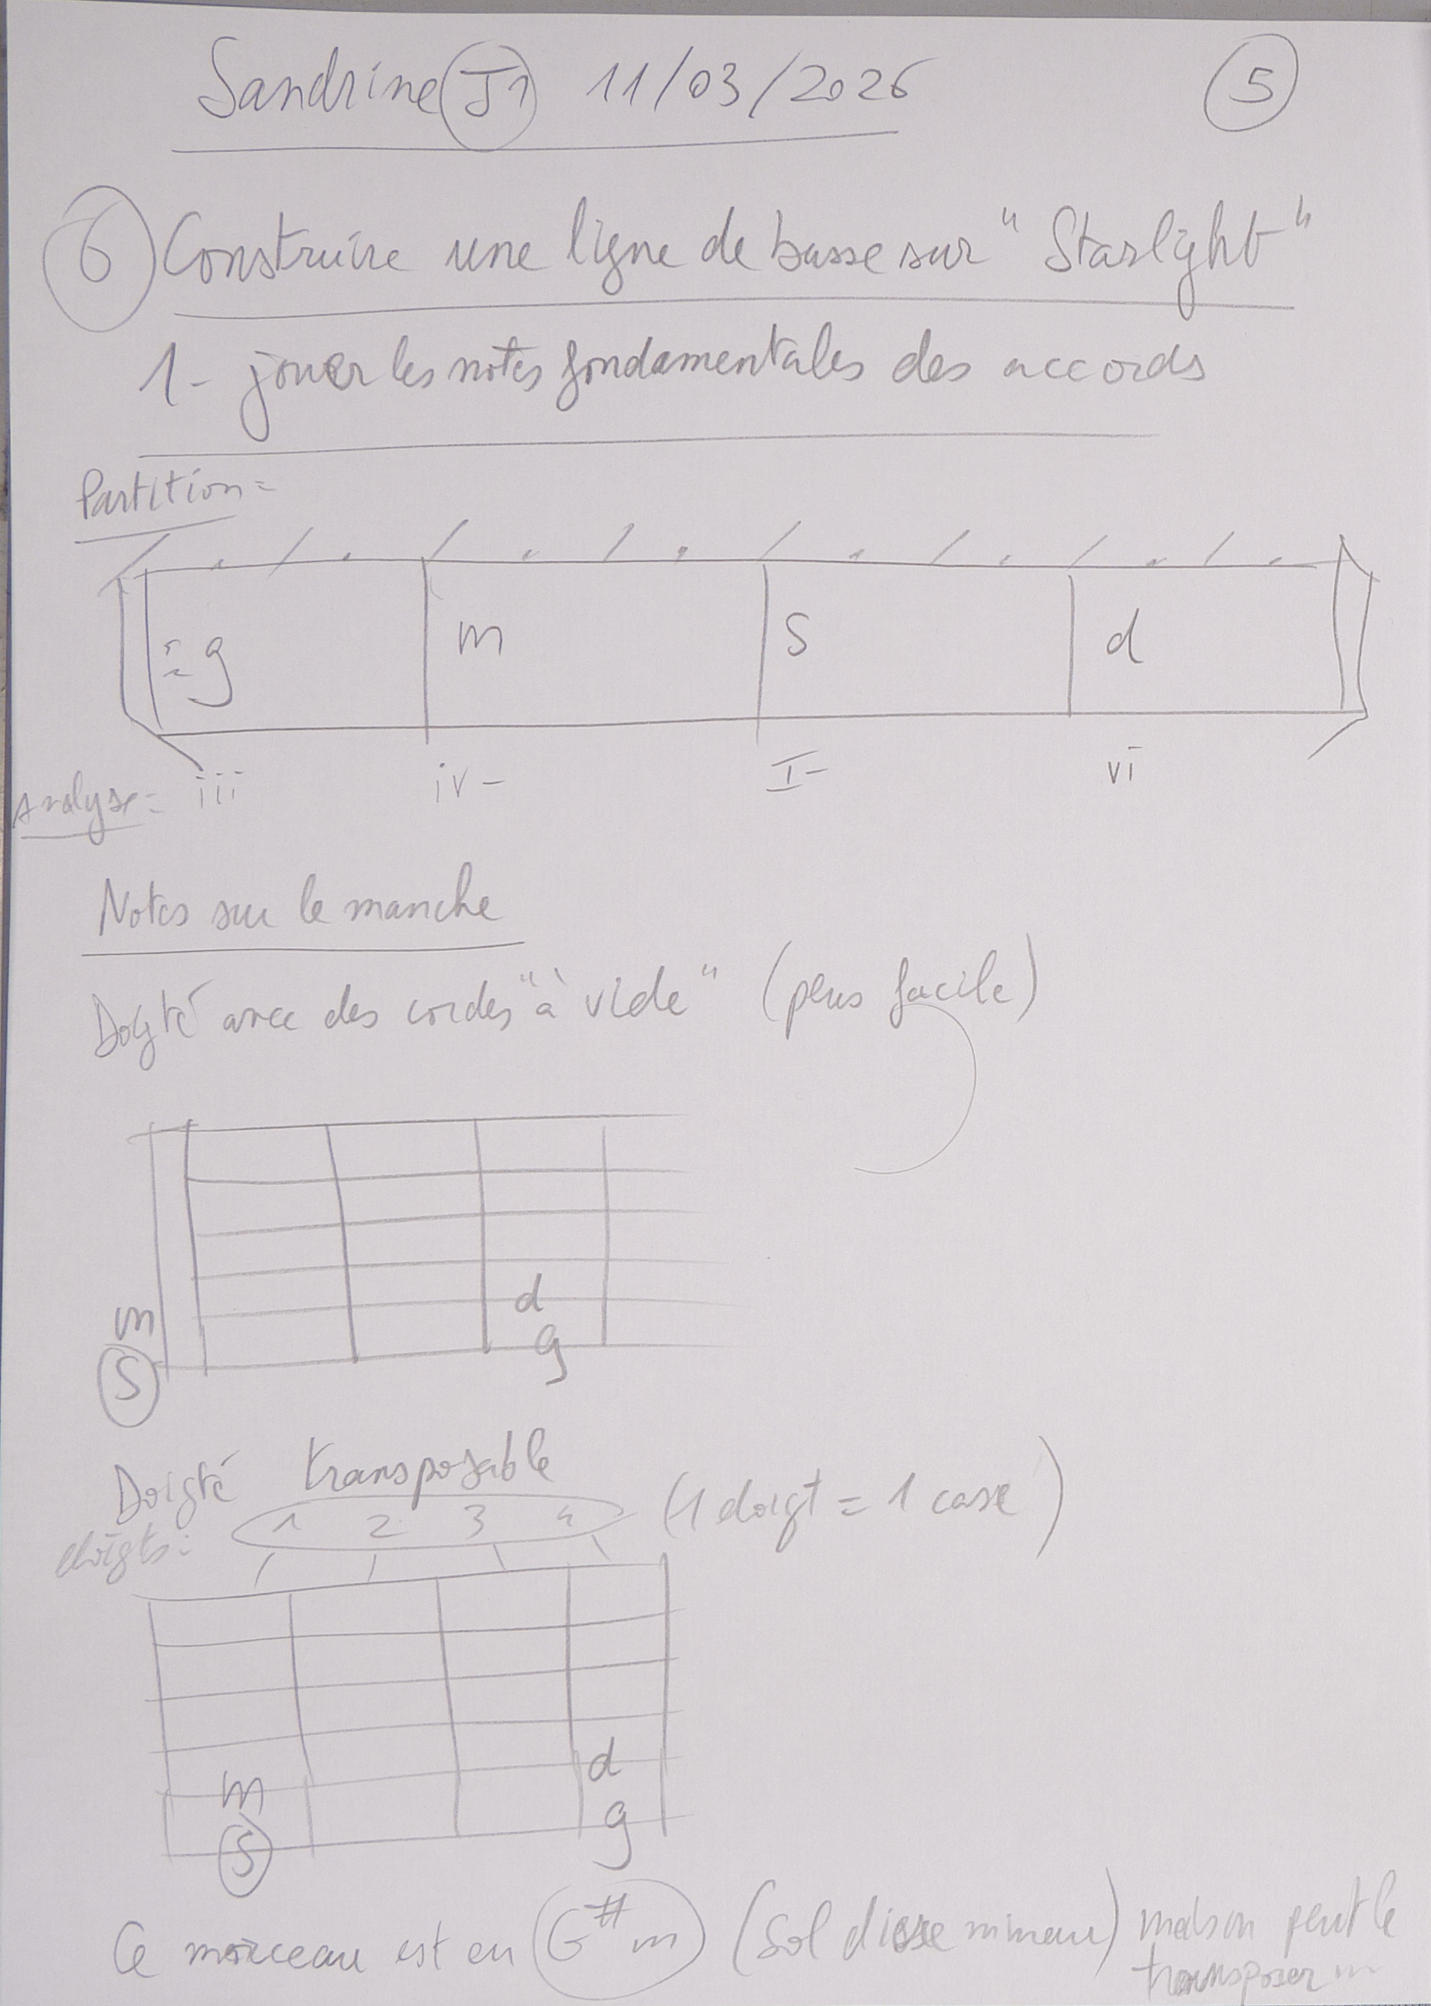 Sandrine J1 11/03/2026 5
6 Construire une ligne de basse sur "Starlight"
1- jouer les notes fondamentales des accords
Partition =
g m s d
Analyse = iii iv- I- vi
Notes sur le manche
Doigté avec des cordes "à vide" (plus facile)
m d
S g
Doigté transposable
doigts: 1 2 3 4 (1 doigt = 1 case)
m d
S g
Ce morceau est en G#m (Sol dièse mineur) mais on peut le
transposer